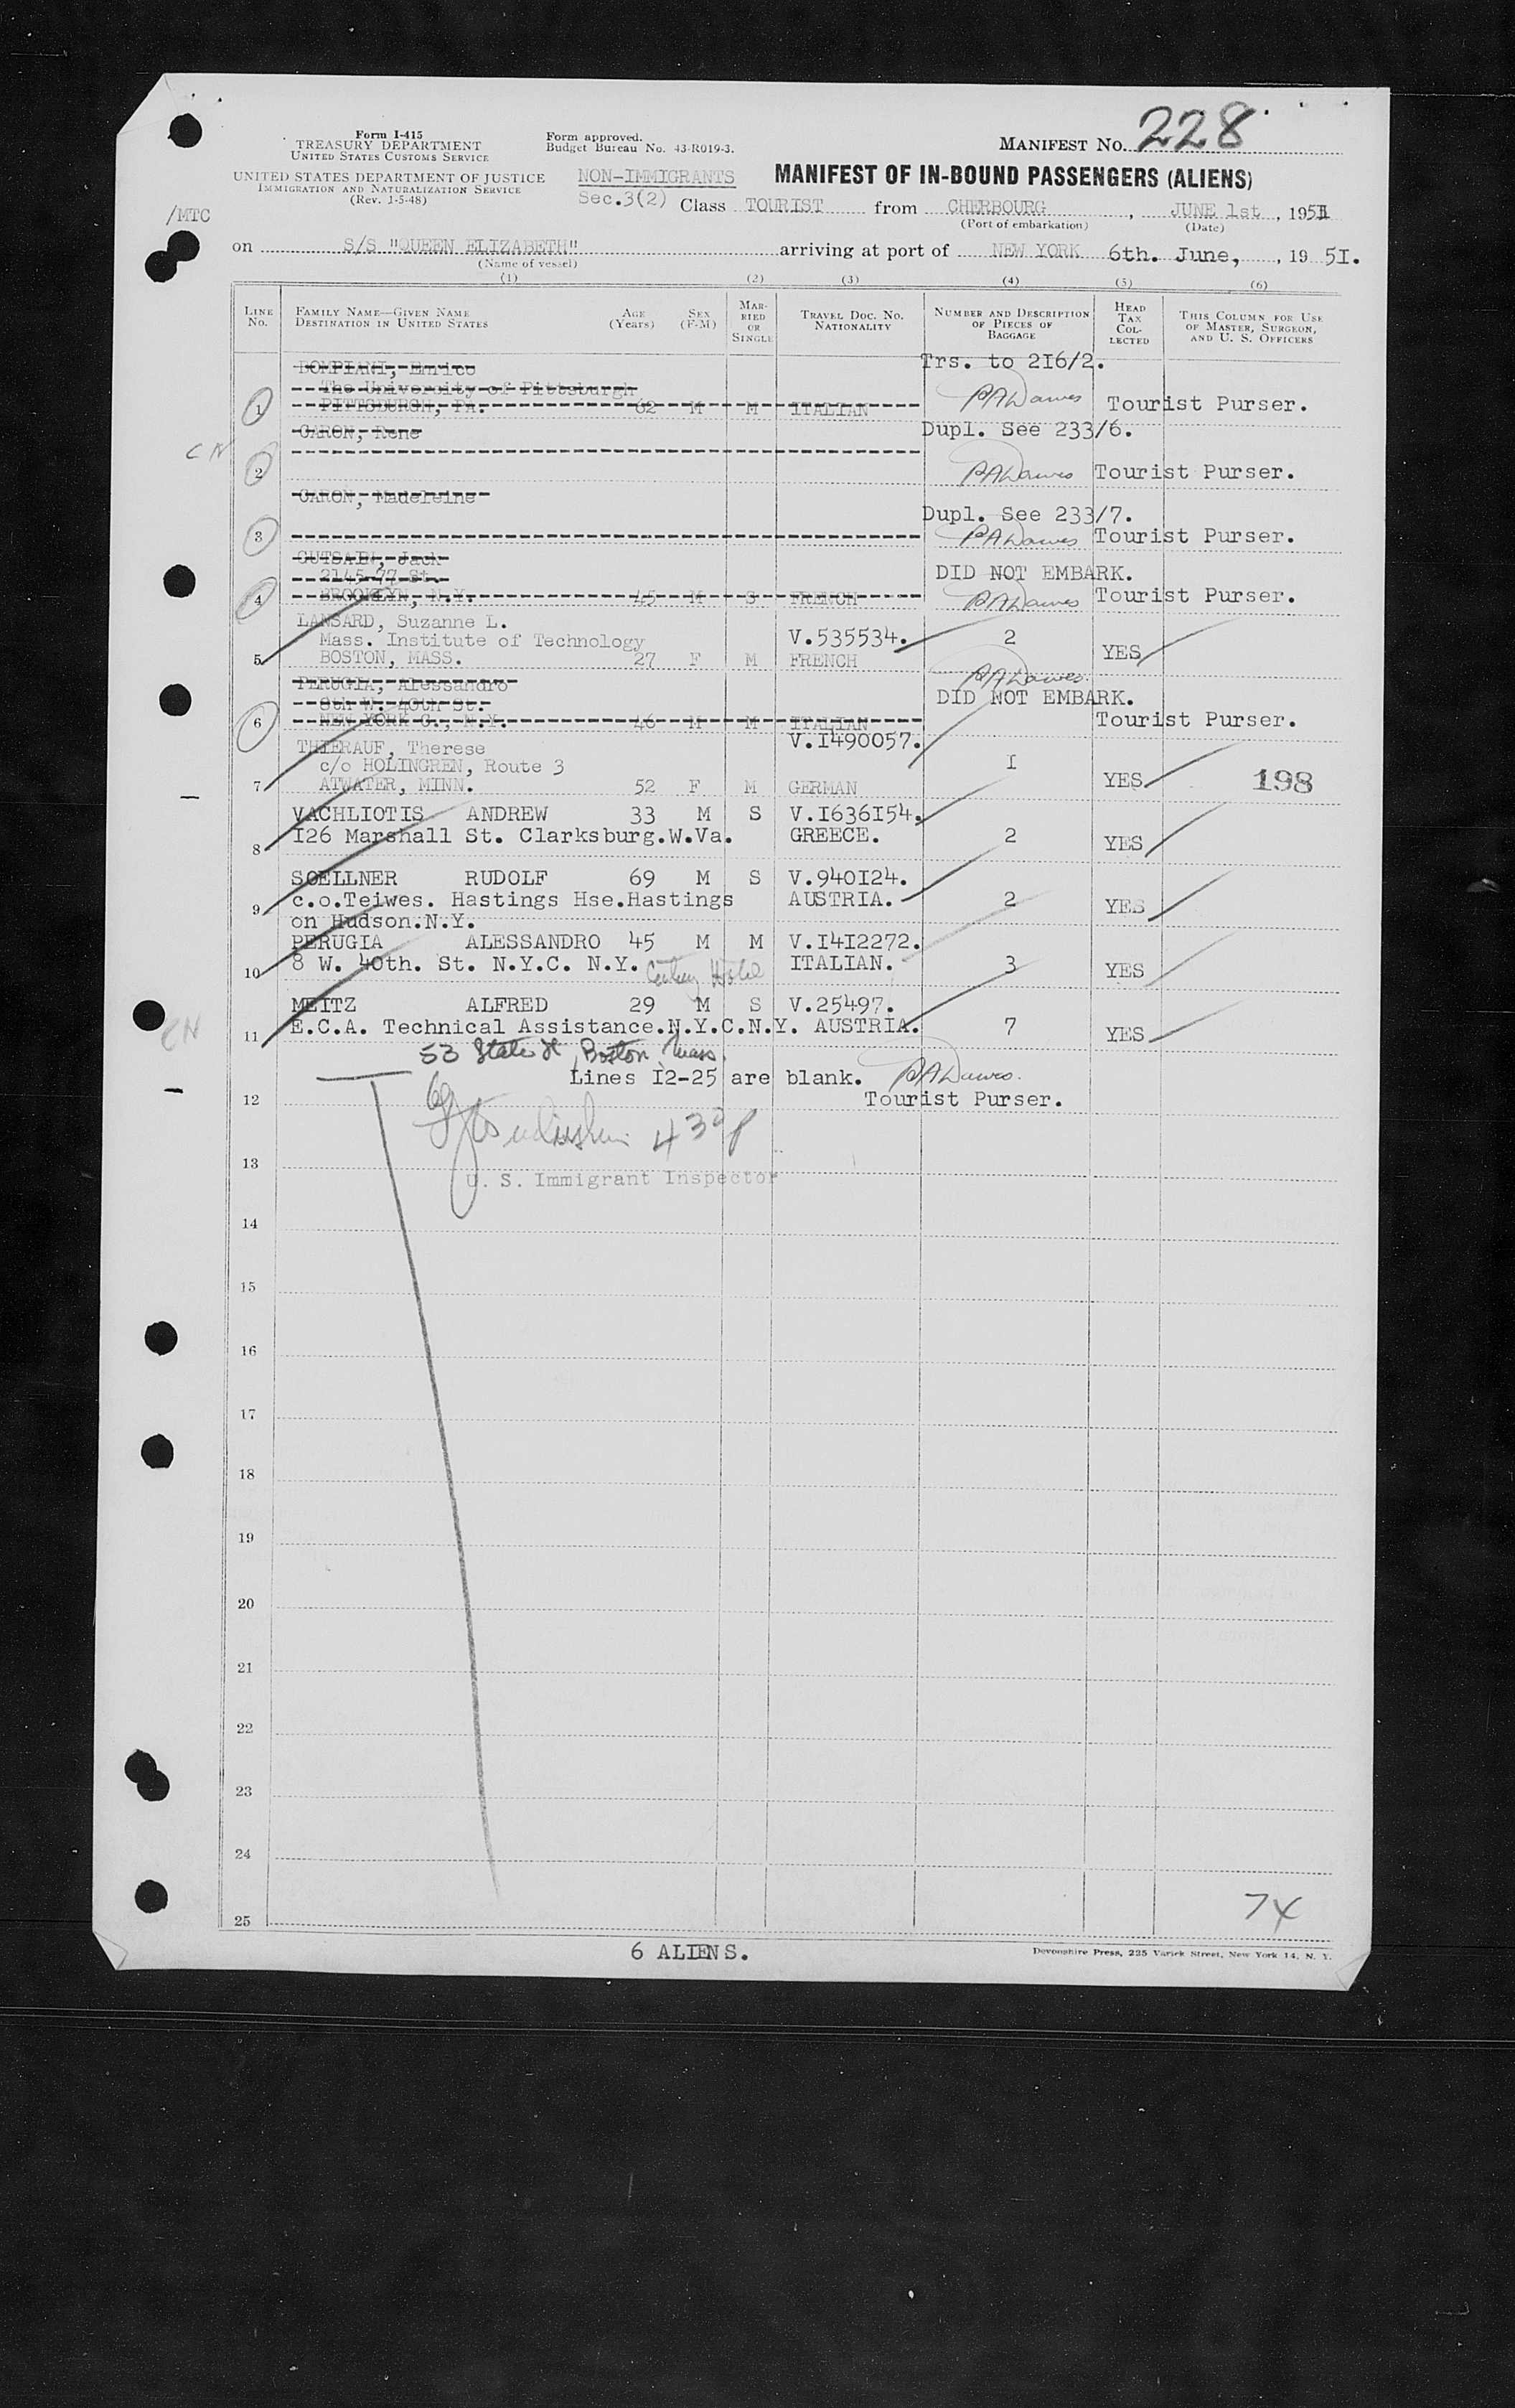 Form I-415
TREASURY DEPARTMENT
UNITED STATES CUSTOMS SERVICE
UNITED STATES DEPARTMENT OF JUSTICE
IMMIGRATION AND NATURALIZATION SERVICE
(Rev. 1-5-48)
Form approved.
Budget Bureau No. 43-R019-3.
MANIFEST No. 228
NON-IMMIGRANTS
Sec.3(2)
MANIFEST OF IN-BOUND PASSENGERS (ALIENS)
/MTC
Class TOURIST from CHERBOURG, JUNE 1st, 1951
(Port of embarkation) (Date)
on S/S "QUEEN ELIZABETH" arriving at port of NEW YORK 6th. June, , 19 5I.
(Name of vessel)
(1) (2) (3) (4) (5) (6)
LINE No. FAMILY NAME—GIVEN NAME DESTINATION IN UNITED STATES AGE (Years) SEX (F-M) MARRIED OR SINGLE TRAVEL DOC. NO. NATIONALITY NUMBER AND DESCRIPTION OF PIECES OF BAGGAGE HEAD TAX COLLECTED THIS COLUMN FOR USE OF MASTER, SURGEON, AND U. S. OFFICERS
BOMPIANI, Enrico Trs. to 2I6/2.
The University of Pittsburgh
1 PITTSBURGH, PA. 62 M M ITALIAN PADawes Tourist Purser.
CARON, Rene Dupl. See 233/6.
CN
2 PADawes Tourist Purser.
CARON, Madeleine
Dupl. See 233/7.
3 PADawes Tourist Purser.
GUTSAIN, Jack
2145-77 St. DID NOT EMBARK.
4 BROOKLYN, N.Y. 45 M S FRENCH PADawes Tourist Purser.
LANSARD, Suzanne L.
Mass. Institute of Technology V.535534. 2
5 BOSTON, MASS. 27 F M FRENCH YES
PERUGIA, Alessandro PADawes.
8th W. 40th St. DID NOT EMBARK.
6 NEW YORK C., N.Y. 46 M M ITALIAN Tourist Purser.
THIERAUF, Therese V.I490057.
c/o HOLINGREN, Route 3 I
7 ATWATER, MINN. 52 F M GERMAN YES 198
VACHLIOTIS ANDREW 33 M S V.I636I54.
8 I26 Marshall St. Clarksburg.W.Va. GREECE. 2 YES
SOELLNER RUDOLF 69 M S V.940I24.
9 c.o.Teiwes. Hastings Hse.Hastings AUSTRIA. 2 YES
on Hudson.N.Y.
PERUGIA ALESSANDRO 45 M M V.I4I2272.
10 8 W. 40th. St. N.Y.C. N.Y. ITALIAN. 3 YES
MEITZ ALFRED 29 M S V.25497.
11 E.C.A. Technical Assistance.N.Y.C.N.Y. AUSTRIA. 7 YES
53 State St, Boston, Mass.
Lines I2-25 are blank. PADawes.
12 Tourist Purser.
13
U. S. Immigrant Inspector
14
15
16
17
18
19
20
21
22
23
24
74
25
6 ALIENS.
Devonshire Press, 225 Varick Street, New York 14, N. Y.